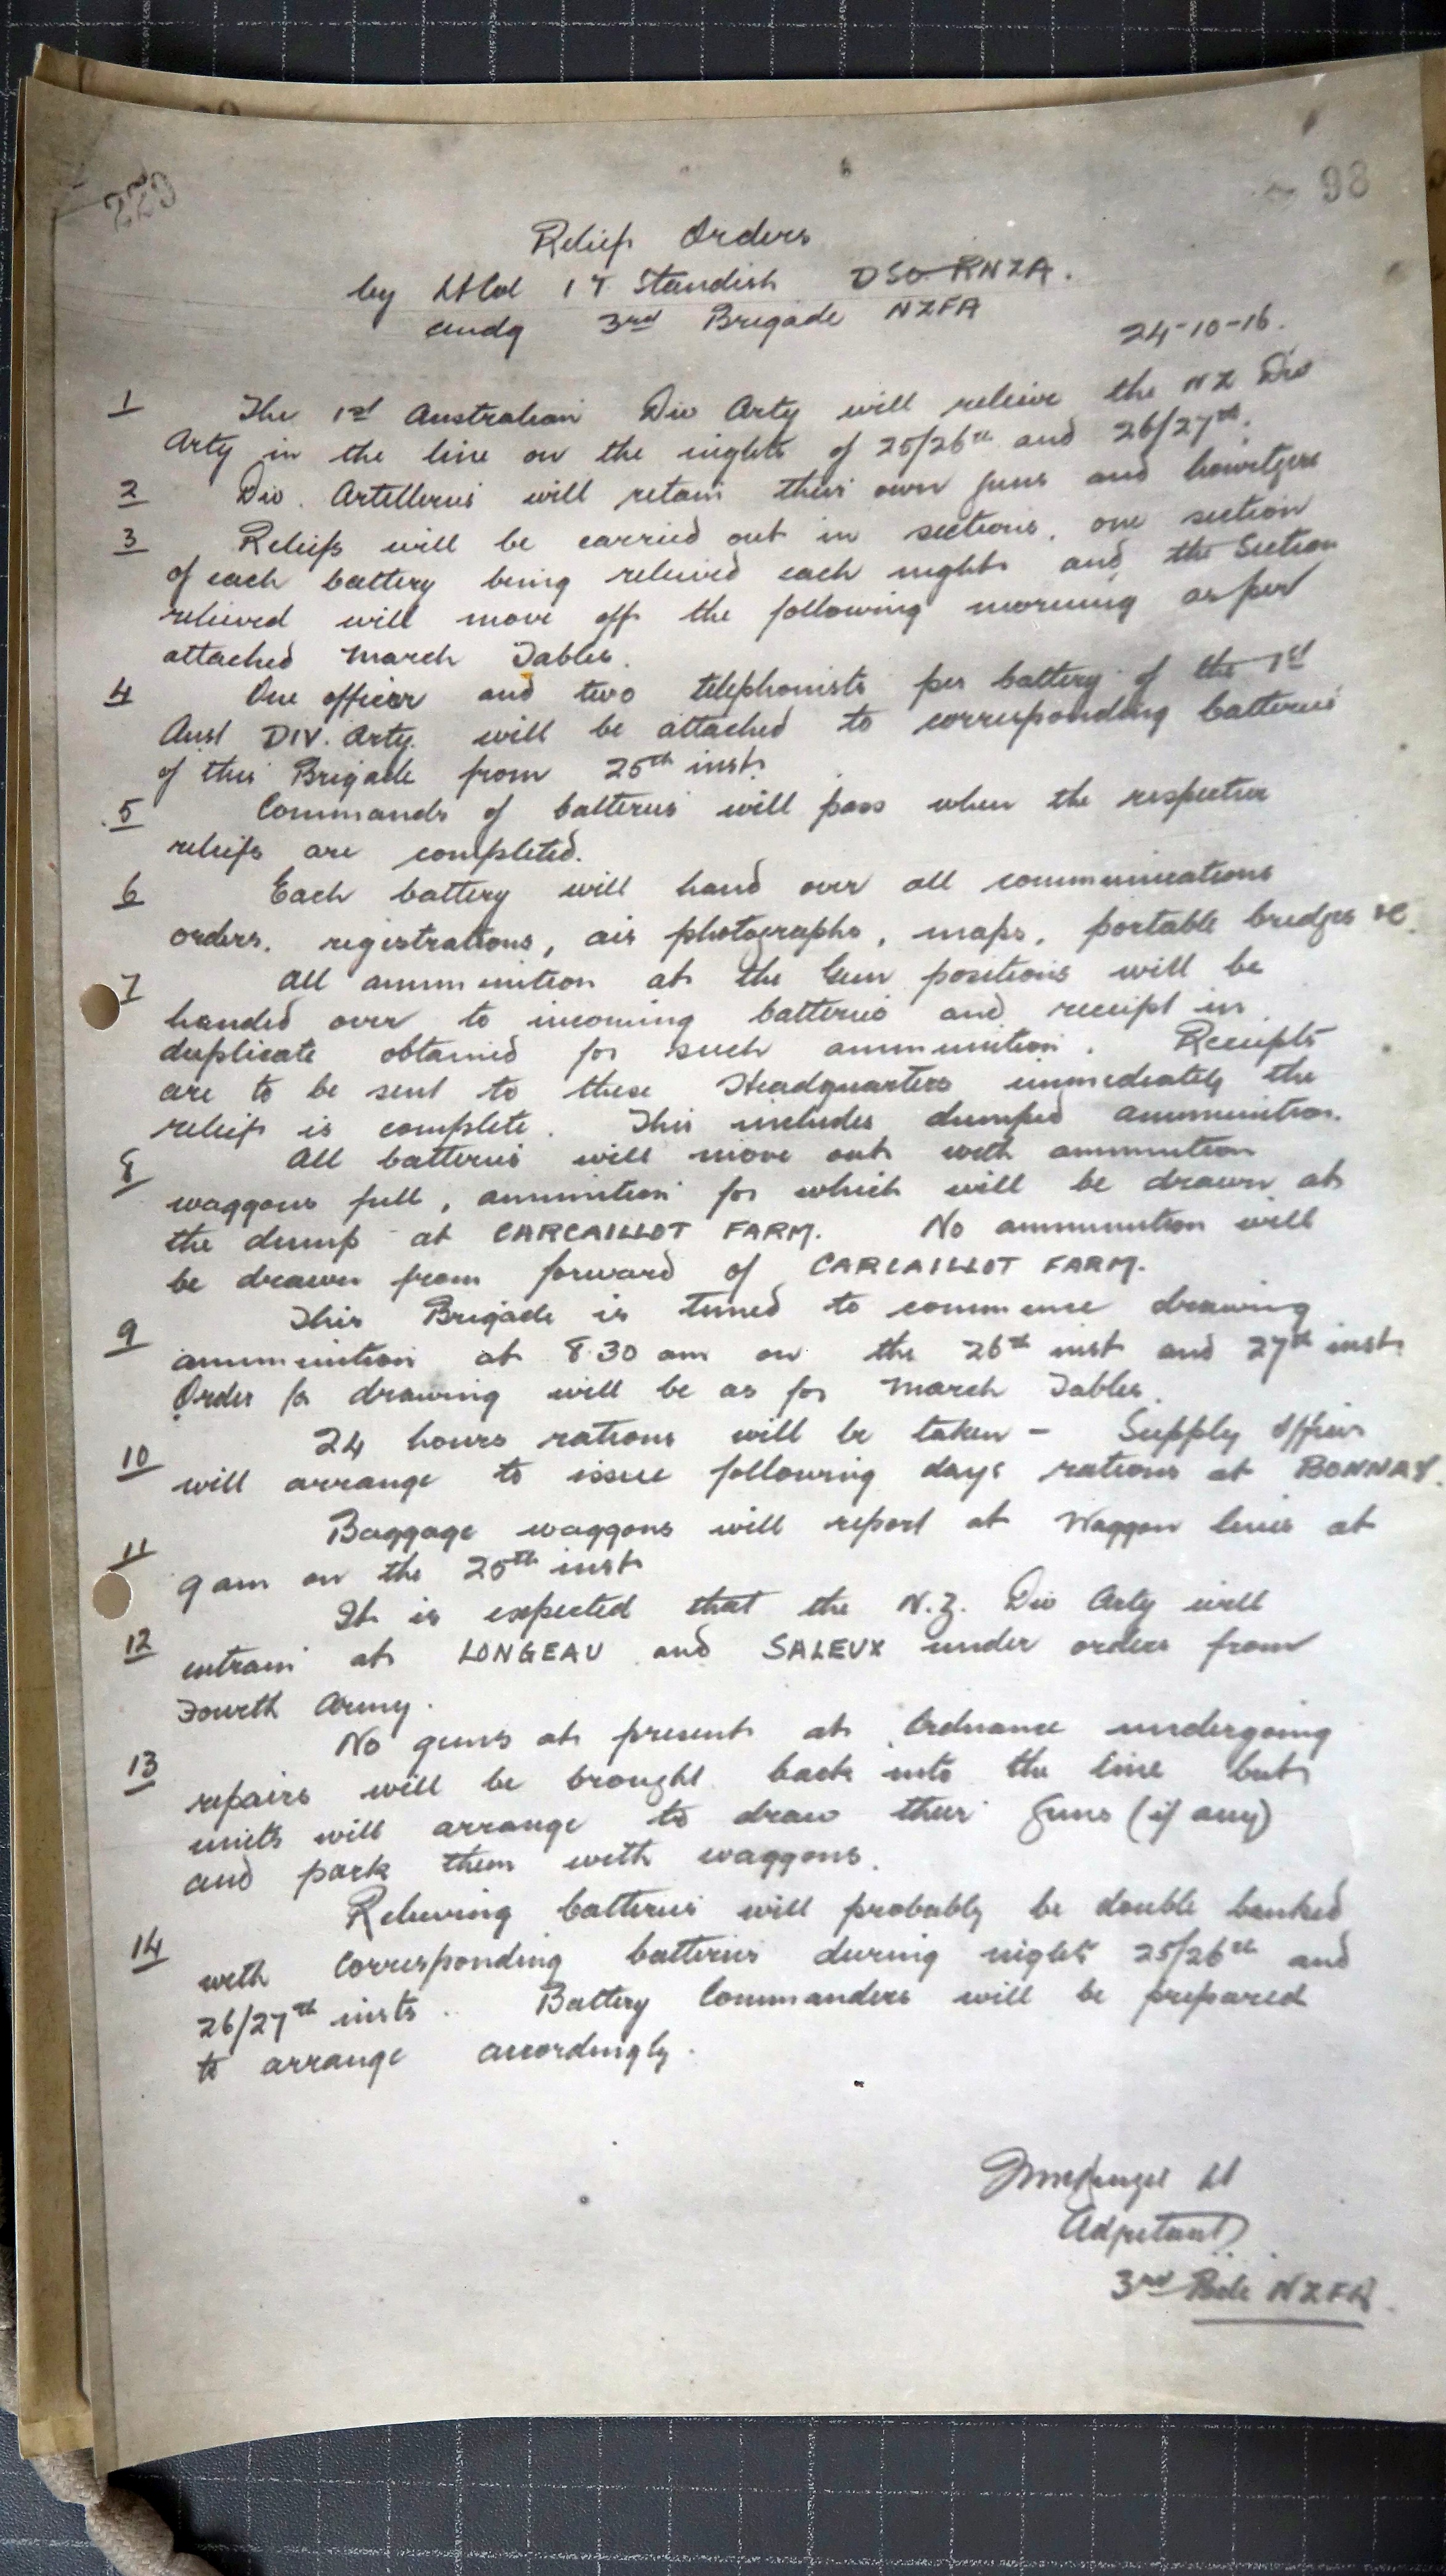 229
98
Relief Orders
by Lt Col I T Standish DSO RNZA.
Cmdg 3rd Brigade NZFA
24-10-16.
1 The 1st Australian Div Arty will relieve the NZ Div
Arty in the line on the nights of 25/26th and 26/27th.
2 Div. Artilleries will retain their own guns and howitzers
3 Reliefs will be carried out in sections, one section
of each battery being relieved each night and the Section
relieved will move off the following morning as per
attached March Tables.
4 One officer and two telephonists per battery of the 1st
Aust DIV. Arty. will be attached to corresponding batteries
of this Brigade from 25th inst.
5 Commands of batteries will pass when the respective
reliefs are completed.
6 Each battery will hand over all communications
orders, registrations, air photographs, maps, portable bridges &c.
7 All ammunition at the Gun positions will be
handed over to incoming batteries and receipt in
duplicate obtained for such ammunition. Receipts
are to be sent to these Headquarters immediately the
relief is complete. This includes dumped ammunition.
8 All batteries will move out with ammunition
waggons full, ammunition for which will be drawn at
the dump at CARCAILLOT FARM. No ammunition will
be drawn from forward of CARCAILLOT FARM.
9 This Brigade is timed to commence drawing
ammunition at 8.30 am on the 26th inst and 27th inst.
Order for drawing will be as for March Tables.
10 24 hours rations will be taken - Supply Officer
will arrange to issue following days rations at BONNAY.
11 Baggage waggons will report at Waggon lines at
9 am on the 25th inst
12 It is expected that the N.Z. Div Arty will
entrain at LONGEAU and SALEUX under orders from
Fourth Army.
13 No guns at present at Ordnance undergoing
repairs will be brought back into the line but
units will arrange to draw their guns (if any)
and park them with waggons.
14 Relieving batteries will probably be double banked
with corresponding batteries during nights 25/26th and
26/27th insts. Battery Commanders will be prepared
to arrange accordingly.
Lt
Adjutant
3rd Bde NZFA